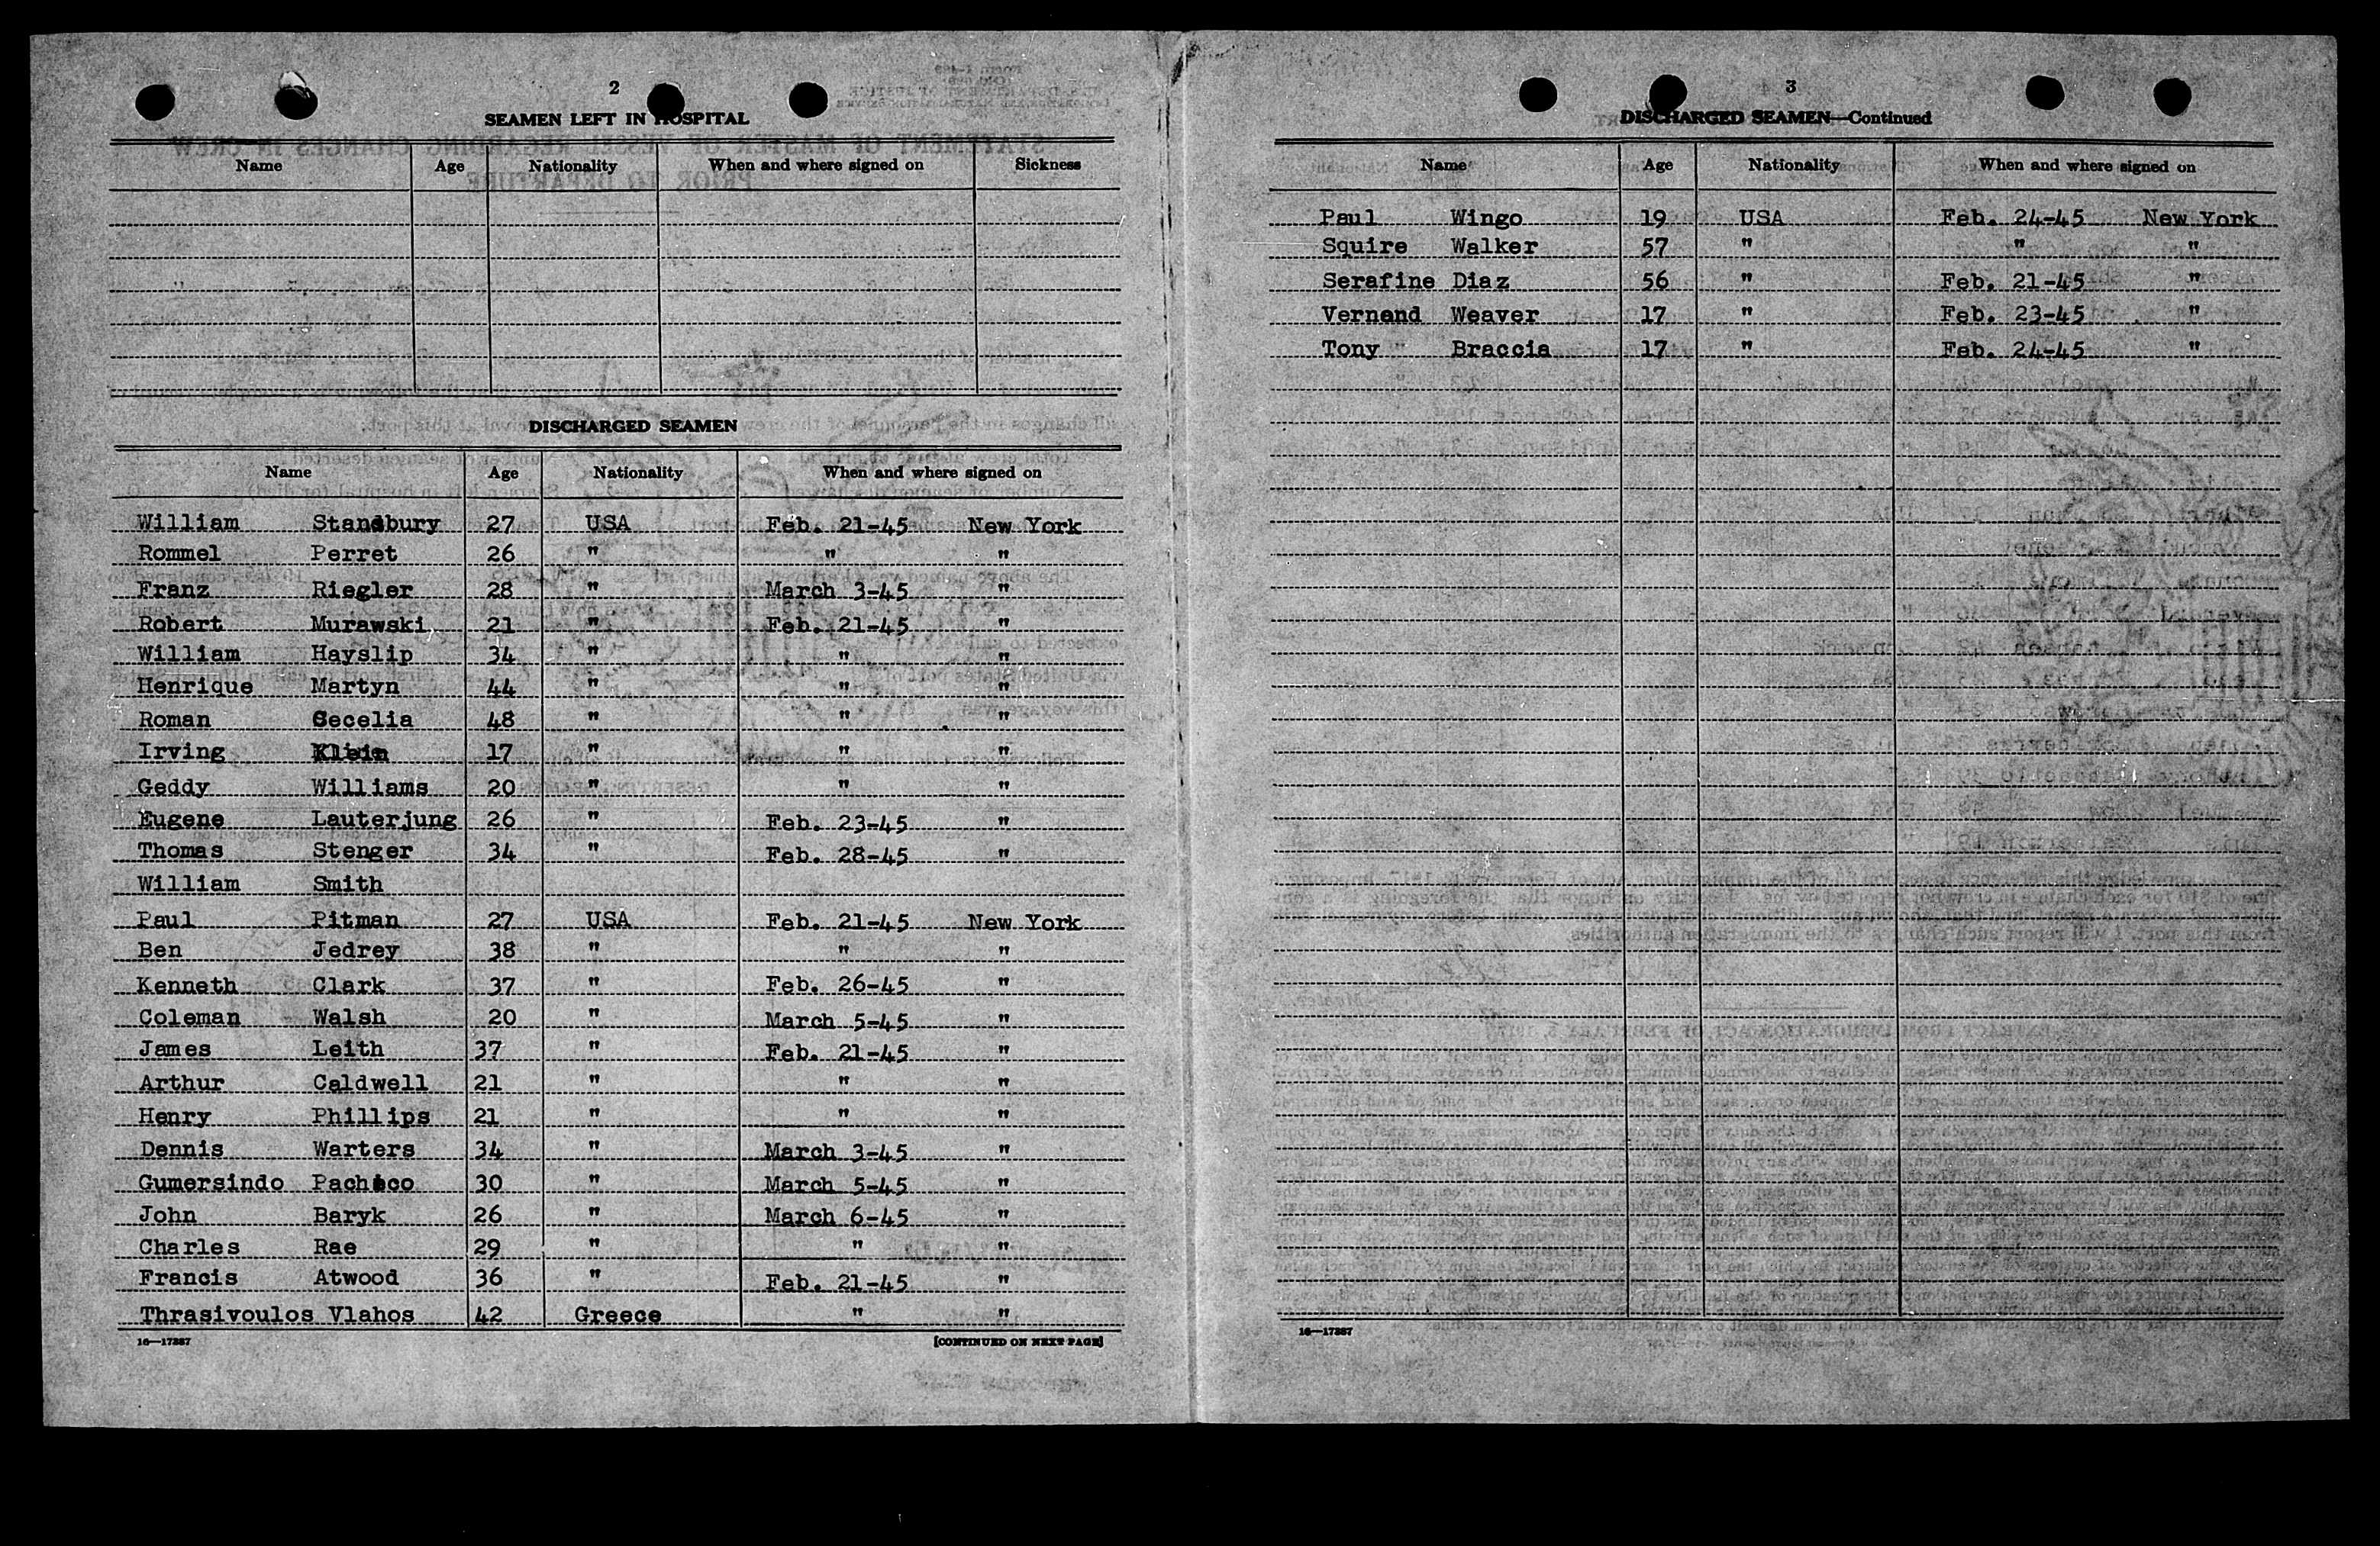 2
SEAMEN LEFT IN HOSPITAL
Name Age Nationality When and where signed on Sickness
DISCHARGED SEAMEN
Name Age Nationality When and where signed on
William Stansbury 27 USA Feb. 21-45 New York
Rommel Perret 26 " " "
Franz Riegler 28 " March 3-45 "
Robert Murawski 21 " Feb. 21-45 "
William Hayslip 34 " " "
Henrique Martyn 44 " " "
Roman Cecelia 48 " " "
Irving Klein 17 " " "
Geddy Williams 20 " " "
Eugene Lauterjung 26 " Feb. 23-45 "
Thomas Stenger 34 " Feb. 28-45 "
William Smith
Paul Pitman 27 USA Feb. 21-45 New York
Ben Jedrey 38 " " "
Kenneth Clark 37 " Feb. 26-45 "
Coleman Walsh 20 " March 5-45 "
James Leith 37 " Feb. 21-45 "
Arthur Caldwell 21 " " "
Henry Phillips 21 " " "
Dennis Warters 34 " March 3-45 "
Gumersindo Pacheco 30 " March 5-45 "
John Baryk 26 " March 6-45 "
Charles Rae 29 " " "
Francis Atwood 36 " Feb. 21-45 "
Thrasivoulos Vlahos 42 Greece " "
16—17387 [CONTINUED ON NEXT PAGE]
3
DISCHARGED SEAMEN—Continued
Name Age Nationality When and where signed on
Paul Wingo 19 USA Feb. 24-45 New York
Squire Walker 57 " " "
Serafine Diaz 56 " Feb. 21-45 "
Vernand Weaver 17 " Feb. 23-45 "
Tony Braccia 17 " Feb. 24-45 "
16—17387